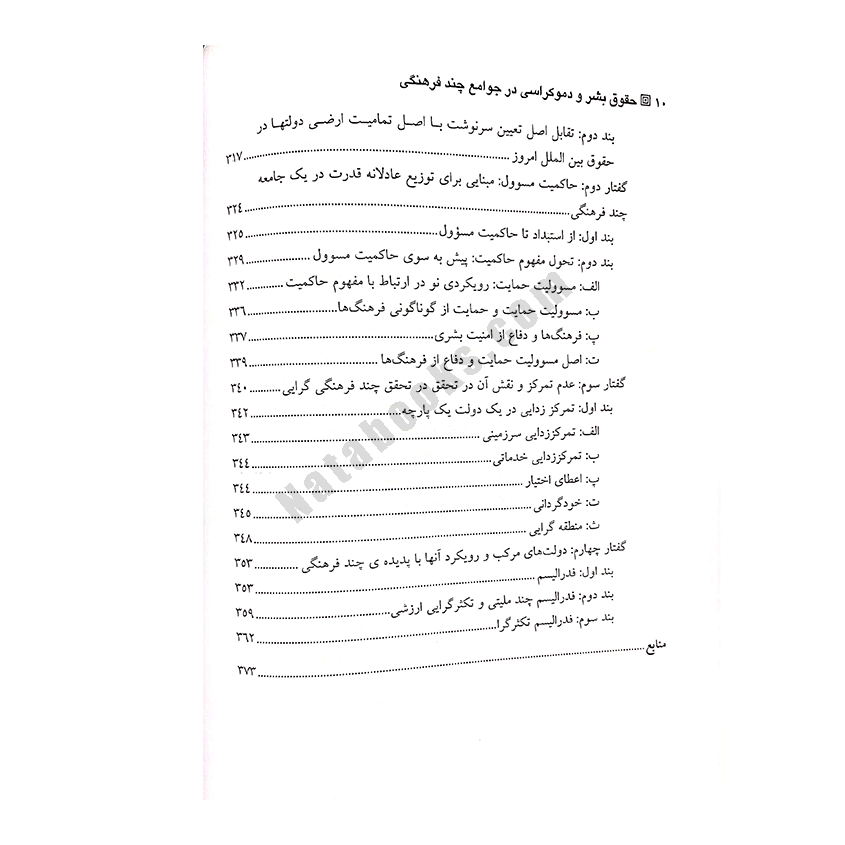 ۱۰ 回 حقوق بشر و دموکراسی در جوامع چند فرهنگی
بند دوم: تقابل اصل تعیین سرنوشت بـا اصـل تمامیـت ارضـی دولتهـا در
حقوق بین الملل امروز ........ ۳۱۷
گفتار دوم: حاکمیت مسوول: مبنایی برای توزیع عادلانه قدرت در یک جامعه
چند فرهنگی ........ ۳۲٤
بند اول: از استبداد تا حاکمیت مسؤول ........ ۳۲٥
بند دوم: تحول مفهوم حاکمیت: پیش به سوی حاکمیت مسوول ........ ۳۲۹
الف: مسوولیت حمایت: رویکردی نو در ارتباط با مفهوم حاکمیت ........ ۳۳۲
ب: مسوولیت حمایت و حمایت از گوناگونی فرهنگ‌ها ........ ۳۳٦
پ: فرهنگ‌ها و دفاع از امنیت بشری ........ ۳۳۷
ت: اصل مسوولیت حمایت و دفاع از فرهنگ‌ها ........ ۳۳۹
گفتار سوم: عدم تمرکز و نقش آن در تحقق در تحقق چند فرهنگی گرایی ........ ۳٤۰
بند اول: تمرکز زدایی در یک دولت یک پارچه ........ ۳٤۲
الف: تمرکززدایی سرزمینی ........ ۳٤۳
ب: تمرکززدایی خدماتی ........ ۳٤٤
پ: اعطای اختیار ........ ۳٤٤
ت: خودگردانی ........ ۳٤٥
ث: منطقه گرایی ........ ۳٤۸
گفتار چهارم: دولت‌های مرکب و رویکرد آنها با پدیده ی چند فرهنگی ........ ۳٥۳
بند اول: فدرالیسم ........ ۳٥۳
بند دوم: فدرالیسم چند ملیتی و تکثرگرایی ارزشی ........ ۳٥۹
بند سوم: فدرالیسم تکثرگرا ........ ۳٦۲
منابع ........ ۳۷۳
Natabooks.com